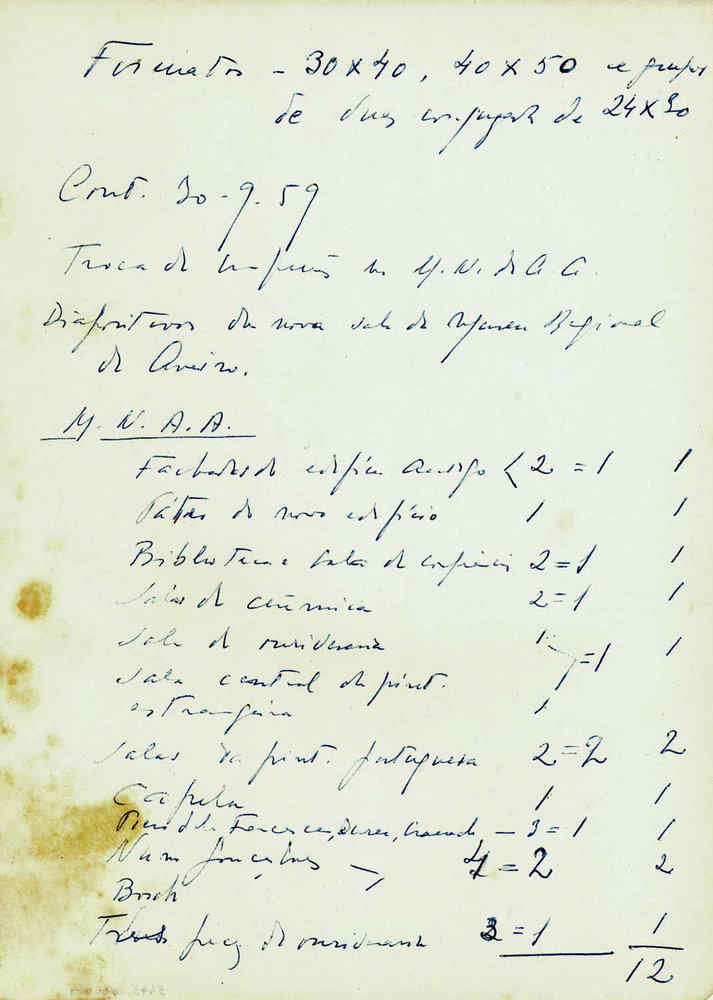 Formatos - 30 x 40, 40 x 50 e grupos
de duas conjugadas de 24 x 30
Cont. 30-9-59
Troca de impressões no M.N. de A.A.
Diapositivos da nova sala do Museu Regional
de Aveiro.
M. N. A. A.
Fachadas do edifício antigo < 2 = 1 1
Pátio do novo edifício 1 1
Biblioteca e sala de conferências 2 = 1 1
Salas de cerâmica 2 = 1 1
Sala de ourivesaria 1 = 1 1
Sala central de pint.
estrangeira 1
Salas da pint. portuguesa 2 = 2 2
Capela 1 1
Piero della Francesca, Durer, Cranach — 3 = 1 1
Nuno Gonçalves 4 = 2 2
Bosch
Três peças de ourivesaria 3 = 1 1
12